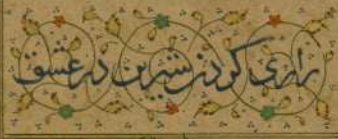 زاری کردن شیرین در عشق